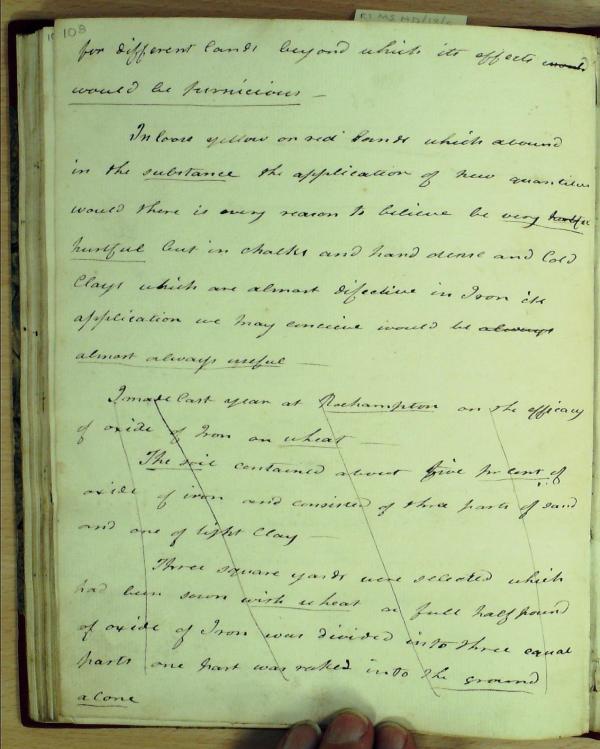 108
RI MS HD/13/
for different Lands beyond which its effects would
would be purnicious —
In loose yellow or red Sands which abound
in the substance the application of new quantities
would there is every reason to believe be very
hurtful but in chalks and hard dense and Cold
Clays which are almost difective in Iron its
application we may concieve would be always
almost always useful —
I made last year at Roehampton on the efficacy
of oxide of Iron on wheat —
The soil contained about five pr cent of
oxide of iron and consisted of three parts of sand
and one of light Clay —
Three square yards were selected which
had been sown with wheat a full half pound
of oxide of Iron was divided into three equal
parts one part was raked into the ground
alone